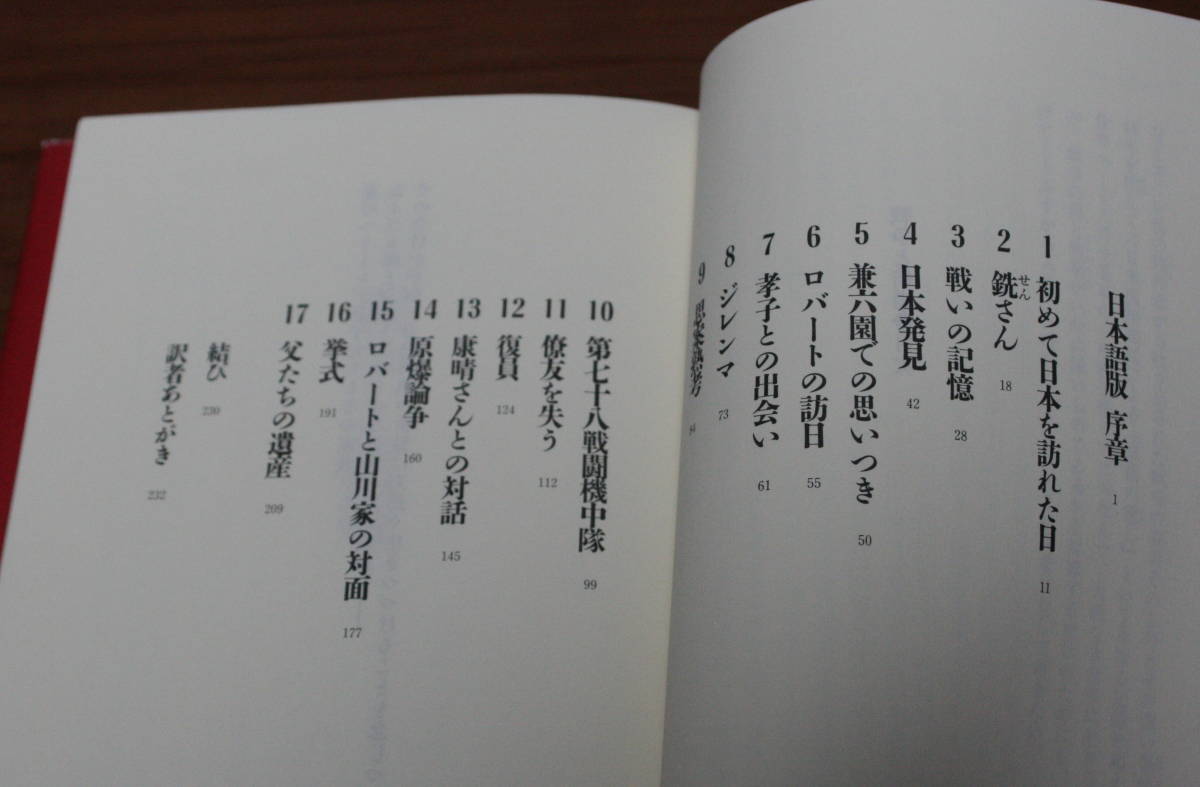 日本語版 序章 1
1 初めて日本を訪れた日 11
2 銑さん 18
せん
3 戦いの記憶 28
4 日本発見 42
5 兼六園での思いつき 50
6 ロバートの訪日 55
7 孝子との出会い 61
8 ジレンマ 73
9
10 第七十八戦闘機中隊 99
11 僚友を失う 112
12 復員 124
13 康晴さんとの対話 145
14 原爆論争 160
15 ロバートと山川家の対面 177
16 挙式 191
17 父たちの遺産 209
結び 230
訳者あとがき 232